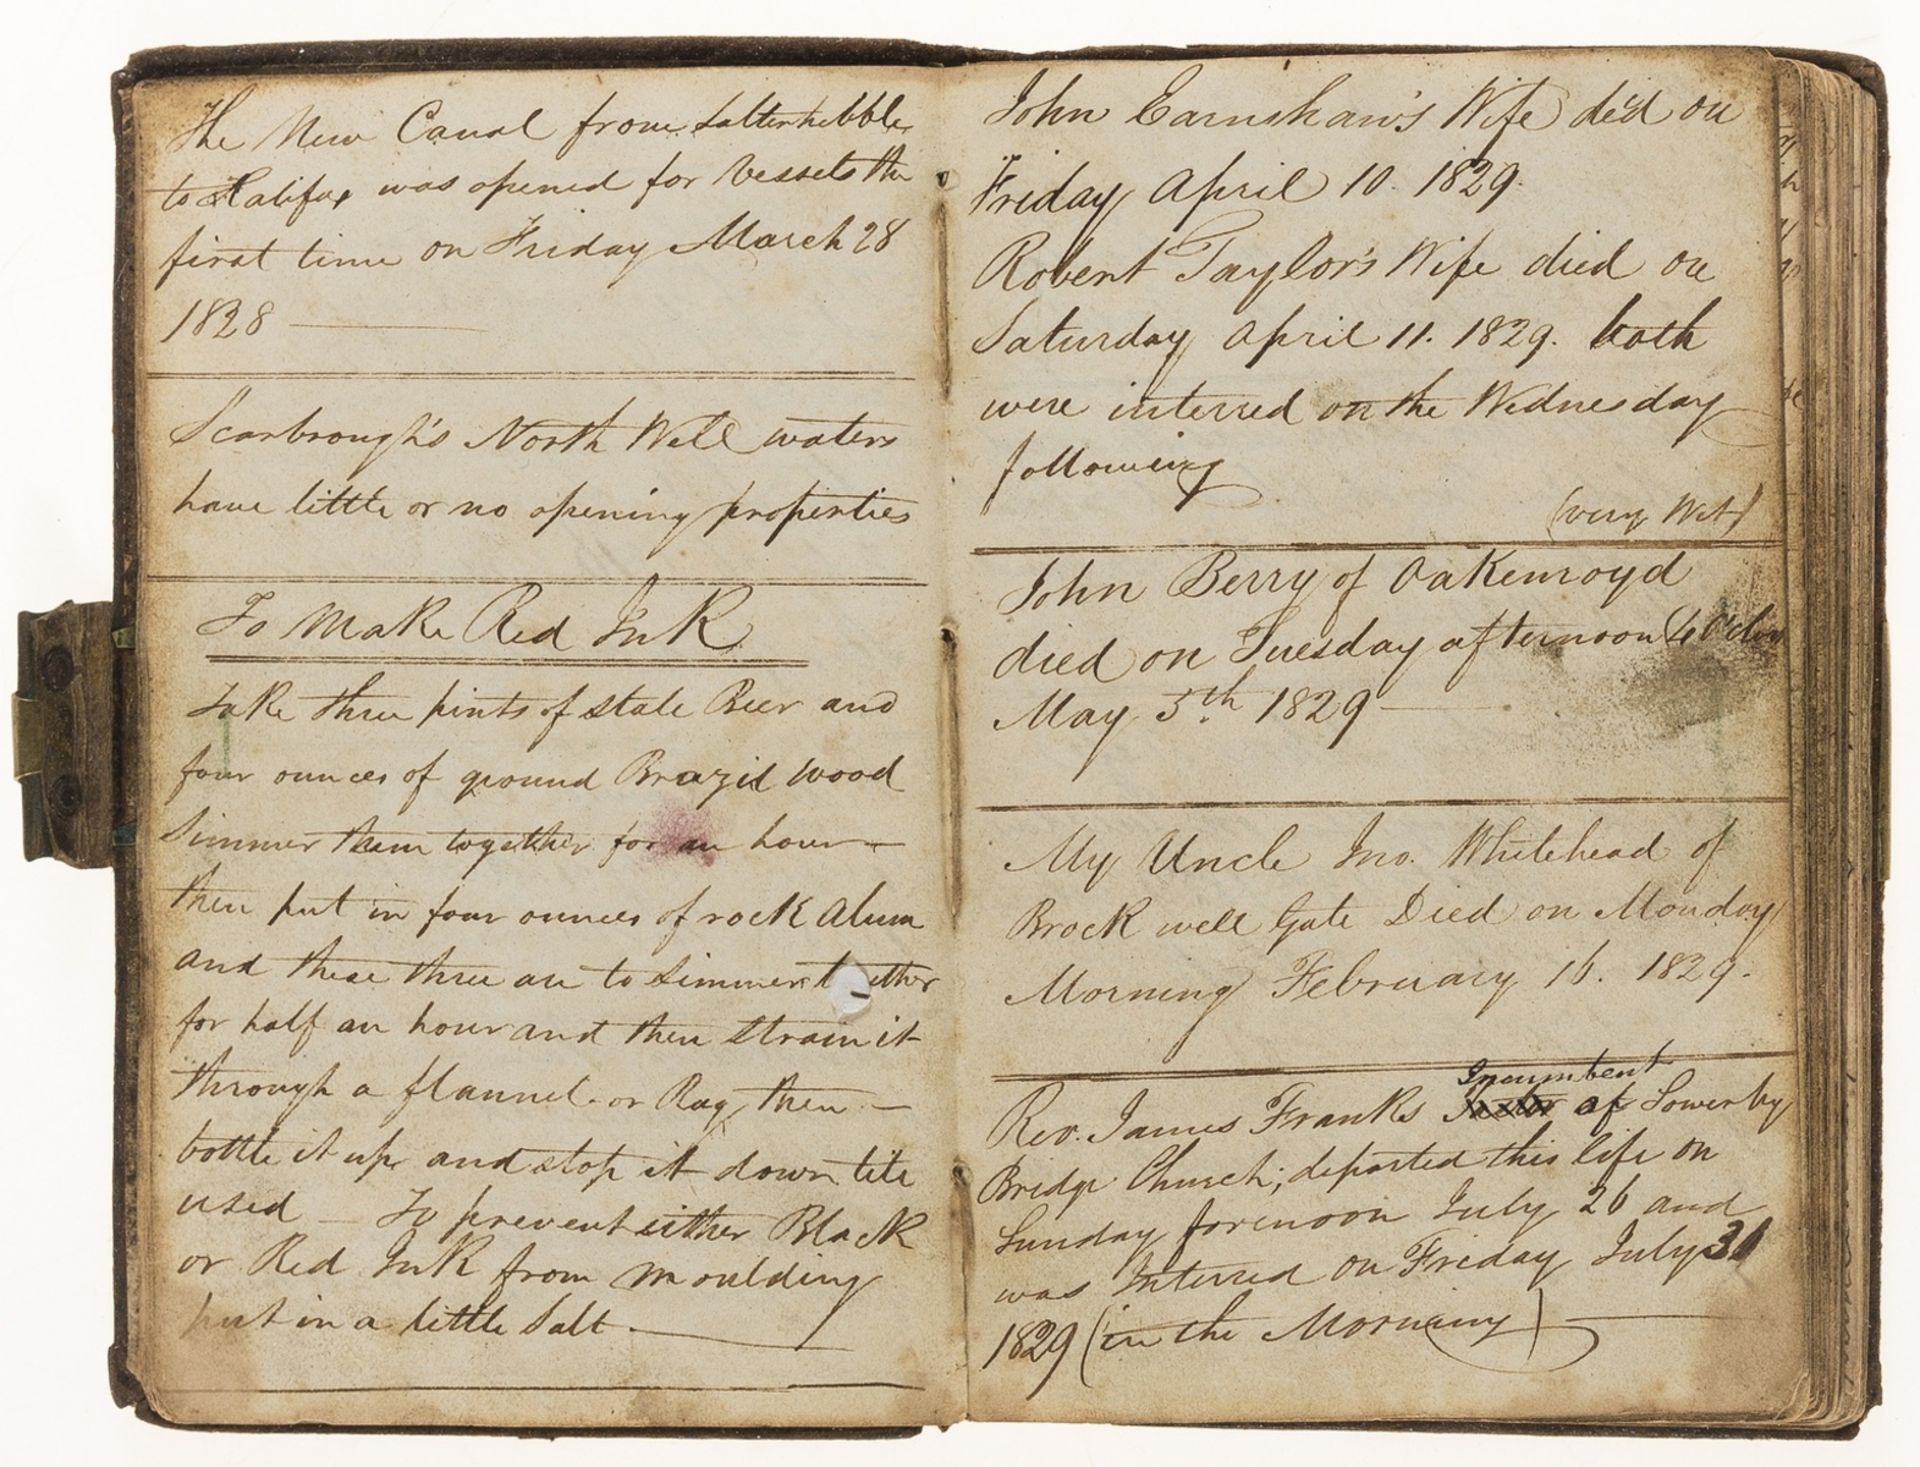 The New Canal from Salterhebble
to Halifax was opened for Vessels the
first time on Friday March 28
1828
Scarbrough's North Well waters
have little or no opening properties
To Make Red Ink
Take three pints of stale Beer and
four ounces of ground Brazil wood
Simmer them together for an hour
then put in four ounces of rock Alum
and these three are to simmer t ether
for half an hour and then strain it
through a flannel or Rag, then –
bottle it up and stop it down tite
used – To prevent either Black
or Red Ink from moulding
put in a little Salt
John Earnshaw's Wife died on
Friday April 10. 1829.
Robert Taylor's Wife died on
Saturday April 11. 1829. both
were interred on the Wednesday
following
(very Wet)
John Berry of Oakenroyd
died on Tuesday afternoon (4 O'Clo
May 5th 1829
My Uncle Jno. Whitehead of
Brockwell Gate Died on Monday
Morning February 16. 1829.
Incumbent
Rev. James Franks of Sowerby
Bridge Church; departed this life on
Sunday forenoon July 26 and
was Interred on Friday July 31
1829 (in the Morning)